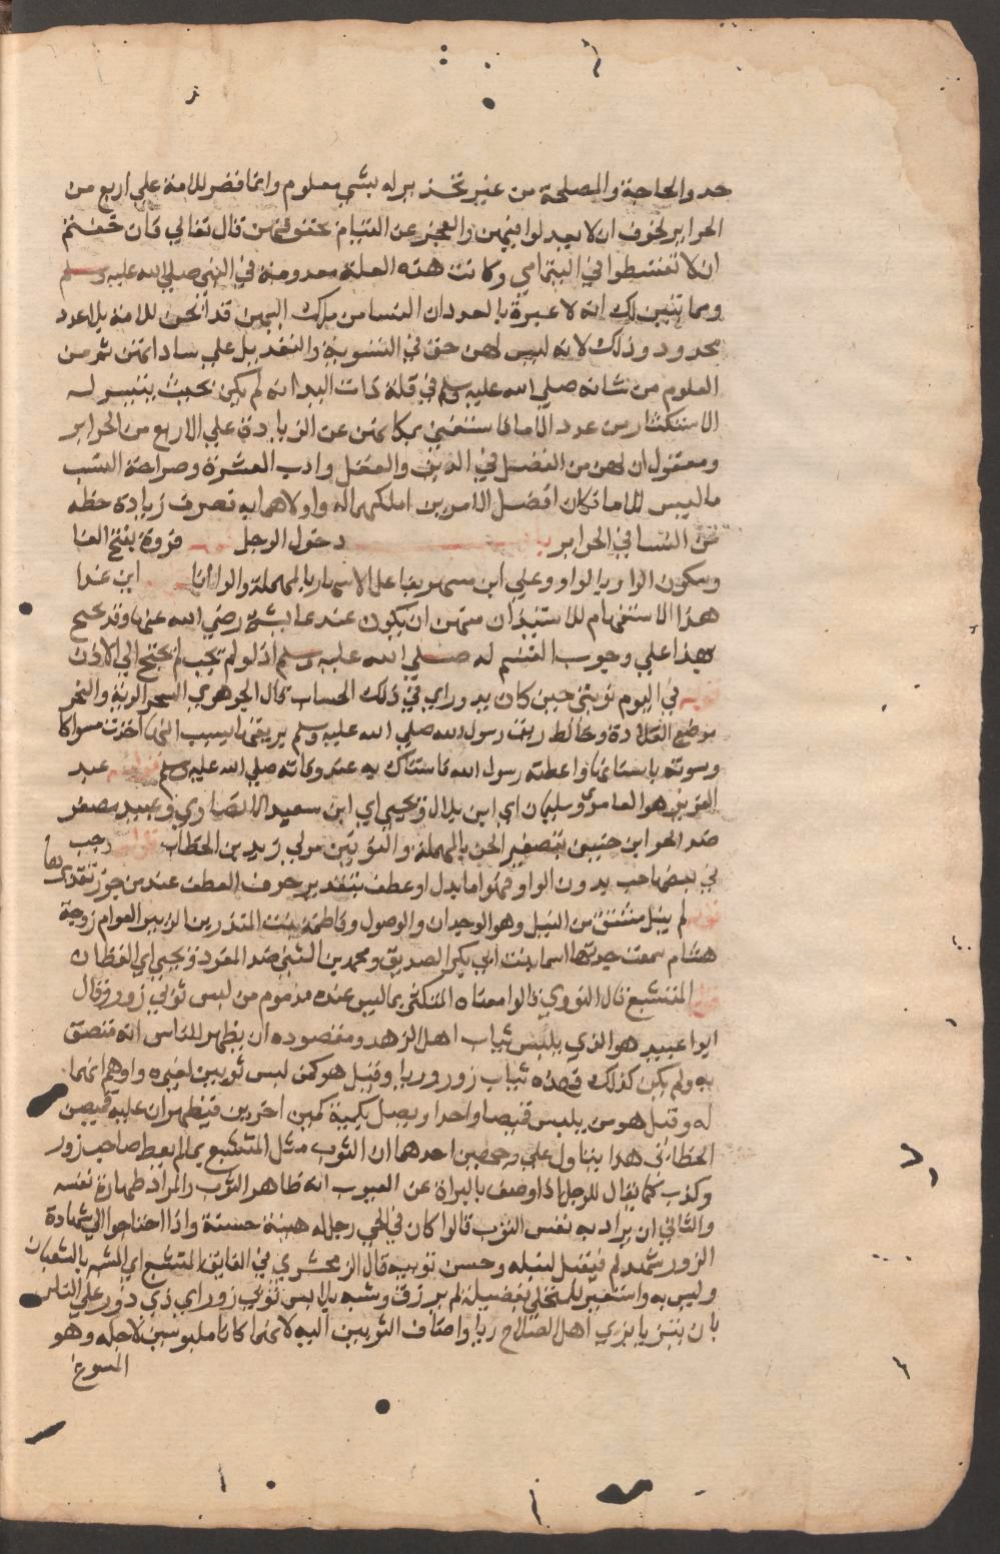 حد والحاجة والمصلحة من غير تحديد له بشي معلوم وانما قصر للامة علي اربع من
الحراير لخوف ان لا يعدلوا فيهن والعجز عن القيام بحقوقهن قال تعالي فان خفتم
ان لا تقسطوا في اليتامي وكانت هذه العلة معدومة في النبي صلي الله عليه وسلم
ومما يتبين لك انه لا عبرة بالعدد ان النسا من ملك اليمين قد ابحن للامة بلا عدد
محدود وذلك لانه ليس لهن حق في التسوية والتعديل علي ساداتهن ثم من
المعلوم من شانه صلي الله عليه وسلم في قلة ذات اليد انه لم يكن بحيث يتيسر له
الاستكثار من عدد الاما فاستغني بمكانهن عن الزيادة علي الاربع من الحراير
ومعقول ان لهن من الفضل في الدين والعقل وادب العشرة وصراحة النسب
ما ليس للاما فكان افضل الامرين املكهما له واولاهما به تصرف زيادة حظه
من النسا في الحراير دخول الرجل فروة بفتح الفا
وسكون الرا وبالواو وعلي ابن مسهر بفاعل الاسهار بالمهملة والرا اين غدا
هذا الاستفهام للاستيذان منهن ان يكون عند عايشة رضي الله عنها وقد يحتج
بهذا علي وجوب القسم له صلي الله عليه وسلم اذ لو لم يجب لم يحتج الي الاذن
قوله في اليوم نوبتي حين كان يدور اي في ذلك الحساب قال الجوهري السحر الرية والنحر
موضع القلادة وخالط ريقه رسول الله صلي الله عليه وسلم بريقي بسبب انها اخذت مسواكا
وسوته باسنانها واعطته رسول الله فاستاك به عند وفاته صلي الله عليه وسلم قوله عبد
العزيز هو العامري وسليمان اي ابن بلال ويحيي اي ابن سعيد الانصاري وعبيد مصغر
ضد الحر ابن حنين بتصغير الحن بالمهملة والنونين مولي زيد بن الخطاب قوله رجب
في بعضها حب بدون الواو فهو اما بدل او عطف بتقدير حرف العطف عند من جوز تقديرها
قوله لم ينل مشتق من النيل وهو الوجدان والوصول وفاطمة بنت المنذر بن الزبير العوام زوجة
هشام سمعت جدتها اسما بنت ابي بكر الصديق ومحمد بن المثني ضد المفرد ويحيي اي القطان
قوله المتشبع قال النووي قالوا معناه المتكثر بما ليس عنده مذموم من لبس ثوبي زور وقال
ابوا عبيد هو الذي يلبس ثياب اهل الزهد ومقصوده ان يظهر للناس انه متصف
به ولم يكن كذلك فهذه ثياب زور وريا وقيل هو كمن لبس ثوبين لغيره واوهم انهما
له وقيل هو من يلبس قميصا واحدا ويصل بكمية كمين اخرين فيظهر ان عليه قميصين
الخطابي هذا يتاول علي وجهين احدهما ان الثوب مثل المتشبع بما لم يعط صاحب زور
وكذب كما يقال للرجل اذا وصف بالبراة عن العيوب انه طاهر الثوب والمراد طهارة نفسه
والثاني ان يراد به نفس الثوب قالوا كان في الحي رجل له هيئة حسنة واذا احتاجوا الي شهادة
الزور شهد لهم فيقبل لنبله وحسن ثوبيه قال الزمخشري في الفايق المتشبع اي المتشبه بالشبعان
وليس به واستعير للمتحلي بفضيلة لم يرزق وشبه بلابس ثوبي زور اي ذي زور علي الناس
بان يتزيا بزي اهل الصلاح ريا واضاف الثوبين اليه لانهما كانا ملبوسين لاجله وهو
المسوغ